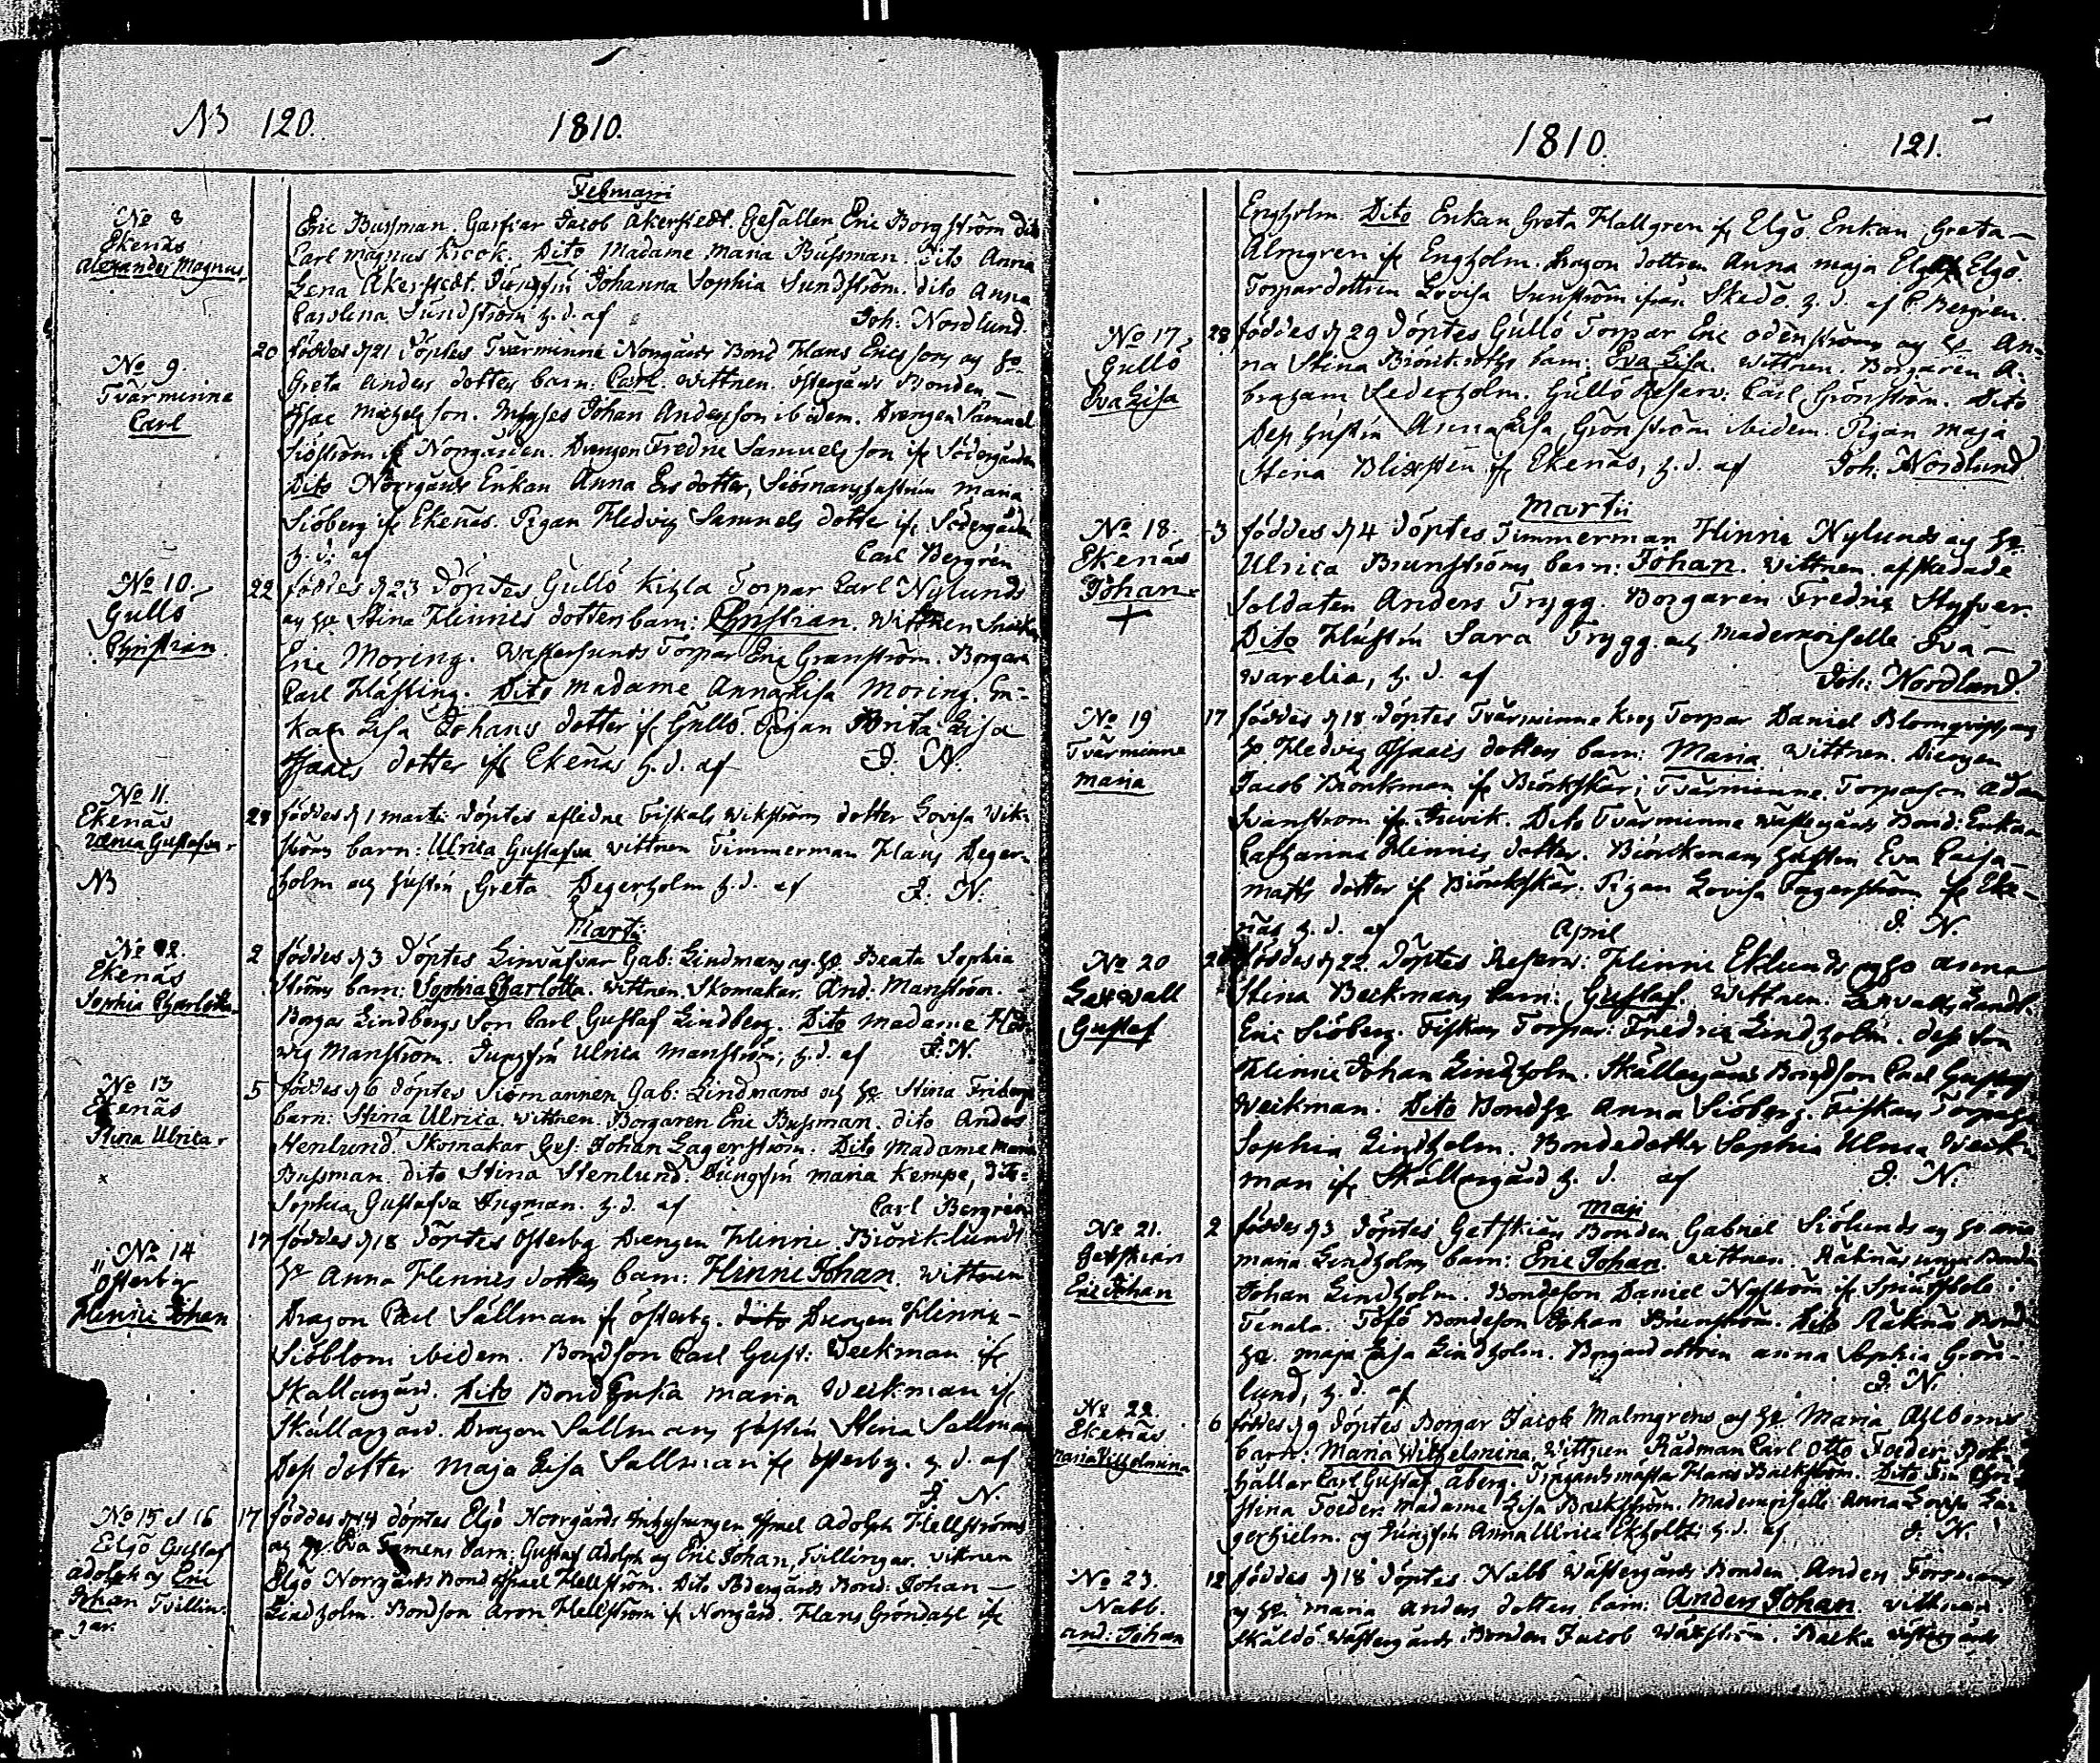 NB 120. 1810.
Februarii
No 8
Ekenäs
Alexander Magnus
Eric Bussman. Garfvar Jacob Åkerstedt. Gesällen Eric Borgström dito
Carl Magnus Krook. Dito Madame Maria Bussman. Dito Anna
Lena Åkerstedt. Jungfrun Johanna Sophia Sundström. dito Anna
Carolina Sundström h. d. af Joh: Nordlund.
No 9.
Tvärminne
Carl
20 föddes d 21 döptes Tvärminne Norrgårds Bond Hans Ericssons og h:o
Greta Anders dotters barn: Carl. vittnen. östergårds Bonden
Isaac Michels son. Inhyses Johan Andersson ibidem. Drengen Samuel
Siöström if Norrgården. Drengen Fredric Samuels son if Södergården
Dito Norrgårds Enkan Anna Ers dotter, Siömans hustrun Maria
Siöberg if Ekenäs. Pigan Hedvig Samuels dotter if Södergården
h. d. af Carl Bergrén
No 10.
Gullö
Christian
22 föddes d 23 döptes Gullö Kihla Torpar Carl Nylunds
og h:o Stina Hinrics dotters barn: Christian. Vittnen
Eric Moring. Torpar Eric Granström. Borgare
Carl Hästing. Dito Madame Anna Lisa Moring. En-
kan Lisa Johans dotter if Gullö. Pigan Brita Lisa
Isaacs dotter if Ekenäs h. d. af J. N.
No 11.
Ekenäs
Ulrica Gustafva
NB
28 föddes d 1 Martii döptes aflidne Fiskals Wikströms dotter Lovisa Wik-
ströms barn: Ulrica Gustafva vittnen Timmerman Hans Deger-
holm og hustrun Greta Degerholm h. d. af J. N.
Martii
No 12.
Ekenäs
Sophia Charlotta
2 föddes d 3 döptes Linväfvar Gab: Lindmans og h:o Beata Sophia
Ströms barn: Sophia Charlotta. vittnen. Skomakar And: Manström.
Borgar Lindbergs Son Carl Gustaf Lindberg. Dito Madame Hed-
vig Manström. Jungfrun Ulrica Manström, h. d. af J. N.
No 13
Ekenäs
Stina Ulrica
5 föddes d 6 döptes Siömannen Gab: Lindmans og h:o Stina
barn: Stina Ulrica. vittnen. Borgaren Eric Bussman. dito Anders
Stenlund. Skomakar Ges: Johan Lagerström. Dito Madame Maria
Bussman. dito Stina Stenlund. Jungfrun Maria Kempe, dito
Sophia Gustafva Ingman. h. d. af Carl Bergrén
No 14
Österby
Hinric Johan
17 föddes d 18 döptes Österby Drengen Hinric Biörklunds
h:o Anna Hinrics dotters barn: Hinric Johan. Vittnen
Dragon Carl Sällman if österby. dito Drengen Hinric
Siöblom ibidem. Bondson Carl Gust: Weckman if
Skållargård. Dito Bond Enka Maria Weckman if
Skållargård. Dragon Sallmans hustrun Stina Sallman
Dess dotter Maja Lisa Sallman if österby. h. d. af
J. N.
No 15 et 16
Elgö Gustaf
Adolph og Eric
Johan Tvillin-
gar.
17 föddes döptes Elgö Norrgårds Inhysningen Israel Adolph Hellströms
og h:o Eva barn: Gustaf Adolph og Eric Johan, Tvillingar. vittnen
Elgö Norrgårds Bond Israel Hellström. Dito Södergårds Bond: Johan
Lindholm. Bondson Aron Hellström if Norrgård. Hans Gröndahl if
1810. 121.
Engholm. Dito Enkan Greta Hallgren if Elgö. Enkan Greta
Almgren if Engholm. Dragon dottren Anna Maja Elg if Elgö.
Torpardottren Lovisa Sunström ifrån Skedö h. d. af C. Bergrén.
No 17.
Gullö
Eva Lisa
28 föddes d 29 döptes Gullö Torpar Eric Odenströms og h:o An-
na Stina barn: Eva Lisa. Vittnen. Borgaren A-
braham Cederholm. Gullö Reserv: Carl Grönström. Dito
Dess hustrun Anna Lisa Grönström ibidem. Pigan Maja
Stina Blixsten if Ekenäs, h. d. af Joh. Nordlund.
Martii
No 18.
Ekenäs
Johan
+
3 föddes d 4 döptes Timmerman Hinric Nylunds og h:o
Ulrica Brunströms barn: Johan. Vittnen. afskedade
Soldaten Anders Trygg. Borgaren Fredric
Dito Hustrun Sara Trygg. og Mademoiselle Eva
Warelia, h. d. af Joh: Nordlund.
No 19
Tvärminne
Maria
17 föddes d 18 döptes Tvärminne Krog Torpar Daniel Blomqvists og
h:o Hedvig Isaacs dotters barn: Maria. Vittnen. Drengen
Jacob Biörkman if Biörkskär; Tvärminne Torparson Adam
Svanström ifr. . Dito Tvärminne Västergårds Bond: Enkan
Catharina Hinrics dotter. Biörkmans hustrun Eva Caisa
Mats dotter if Biörkskär. Pigan Lovisa Fagerström if Eke-
näs h. d. af J. N.
April
No 20
Lexvall
Gustaf
föddes d 22. döptes Reserv: Hinric Eklunds og h:o Anna
Stina Beckmans barn: Gustaf. Vittnen. Lexvalls Landb:
Eric Siöberg. Fiskars Torpar: Fredric Lindholm. dess Son
Hinric Johan Lindholm. Skållargårds Bondson Carl Gustaf
Weckman. Dito Bondh:o Anna Siöberg. Fiskars Torpar
Sophia Lindholm. Bondedotter Sophia Ulrica Weck-
man if Skållargård h. d. af J. N.
Maji
No 21.
Getskiär
Eric Johan
2 föddes d 3 döptes Getskiär Bonden Gabriel Siölunds og h:o Anna
Maria Lindholms barn: Eric Johan. vittnen. Räknäs unge Bonde
Johan Lindholm. Bondeson Daniel Nyström if
Tenala. Tofö Bondeson Johan Brunström. Dito Räknäs Bond
h:o. Maja Lisa Lindholm. Borgardottren Anna Sophia Grön-
lund, h. d. af J. N.
No 22
Ekenäs
Maria Wilhelmina
6 föddes d 9 döptes Borgar Jacob Malmgrens og h:o Maria Ahlboms
barn: Maria Wilhelmina. Vittnen Rådman Carl Otto Toeder. Bok-
hållar Carl Gustaf Åberg. Hans Backström. Dito Chri-
stina Toeder. Madame Lisa Backström. Mademoiselle Anna Lovisa La-
gerhielm. og Jungfrun Anna Ulrica Ekholtz: h. d. af J. N.
No 23.
Nabb.
And: Johan
12 föddes d 18 döptes Nabb Västergårds Bonden Anders Forsmans
og h:o Maria Anders dotters barn: Anders Johan. vittnen.
Skåldö Västergårds Bonden Jacob Wikström. Backa Västergårds